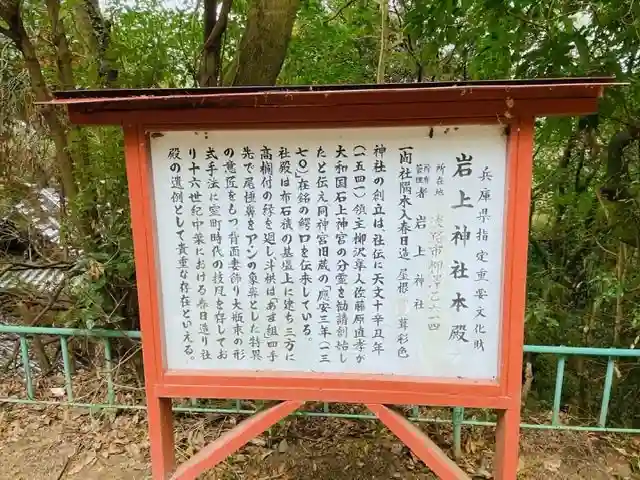 兵庫県指定重要文化財
岩上神社本殿
所在地 淡路市柳澤乙一一四
所有者
管理者 岩上神社
一間社隅木入春日造 屋根 葺彩色
神社の創立は、社伝に天文十辛丑年
(一五四一)領主柳沢隼人佐藤原直孝が
大和国石上神宮の分霊を勧請創祀し
たと伝え同神宮旧蔵の「應安三年(一三
七〇)在銘の鰐口を伝来している。
社殿は布石積の基壇上に建ち三方に
高欄付の縁を廻し斗栱は「出組」四手
先で尾棰鼻をアンの象鼻とした特異
の意匠をもつ背面妻飾り大瓶束の形
式手法に室町時代の技風をのこしてお
り十六世紀中葉における春日造り社
殿の遺例として貴重な存在といえる。